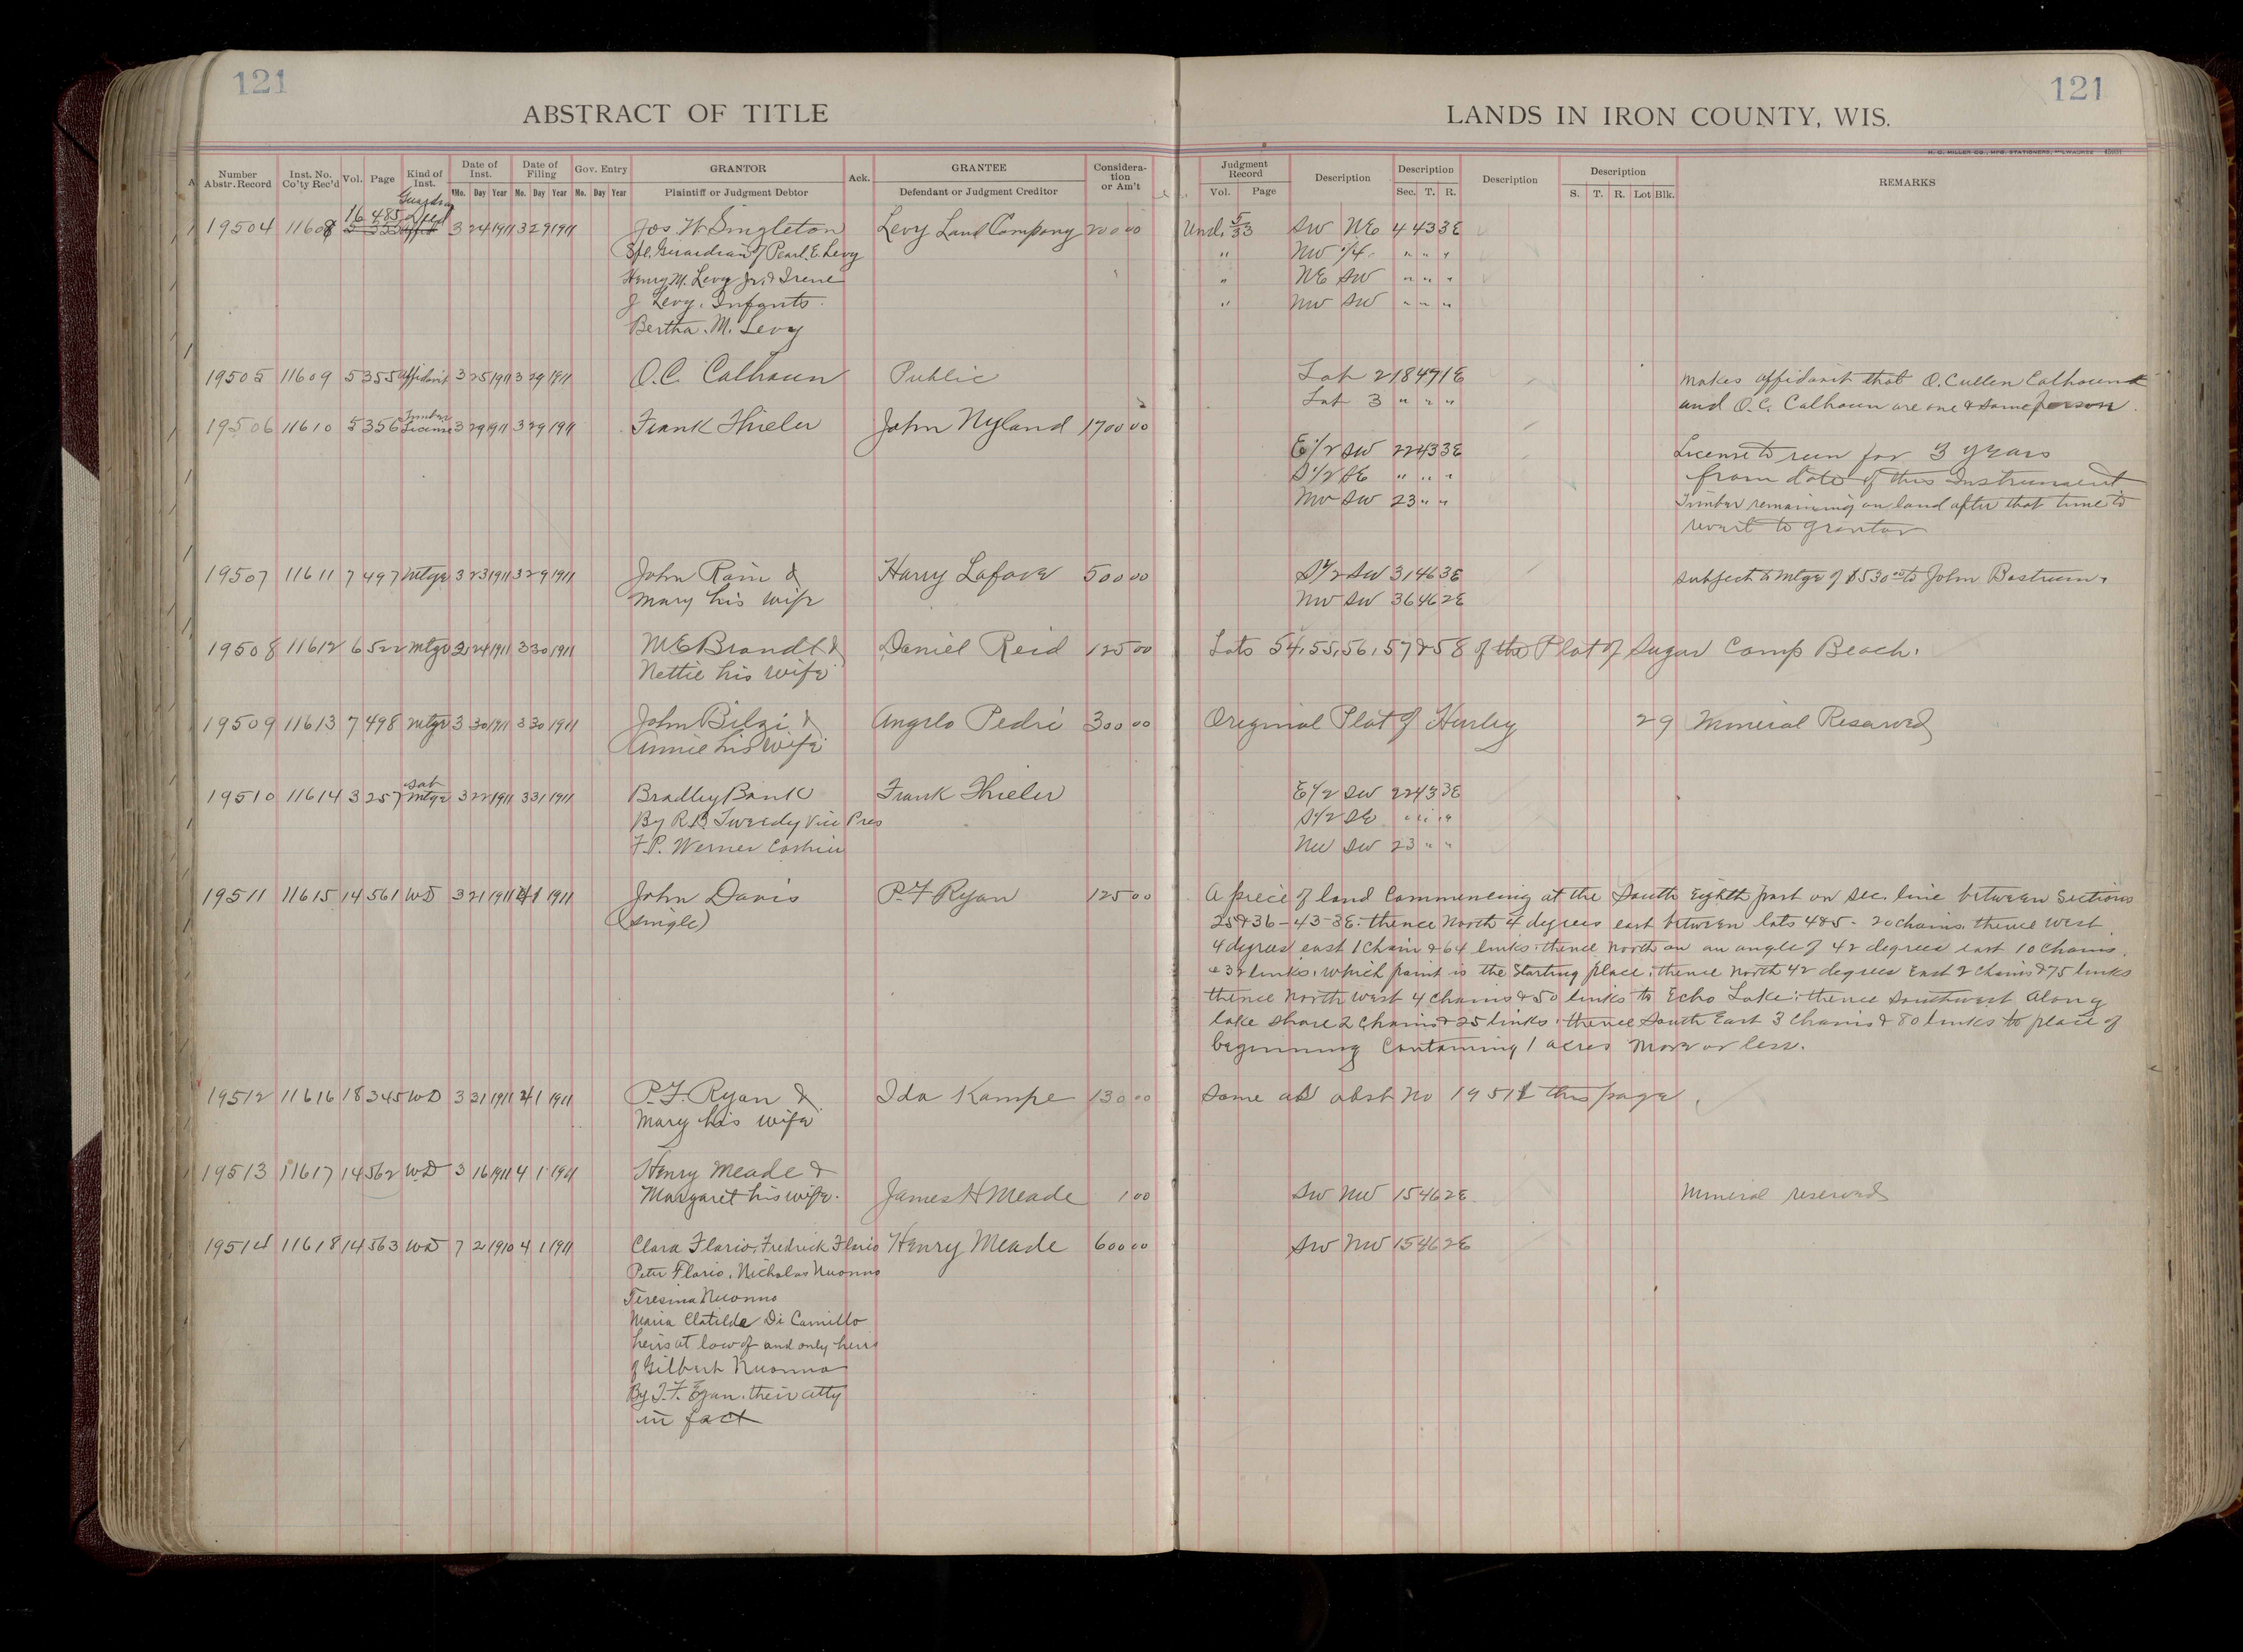 121
ABSTRACT OF TITLE
Number Abstr. Record Inst. No. Co'ty Rec'd Vol. Page Kind of Inst. Date of Inst. Mo. Day Year Date of Filing Mo. Day Year Gov. Entry Mo. Day Year GRANTOR Plaintiff or Judgment Debtor Ack. GRANTEE Defendant or Judgment Creditor Considera-tion or Am't
121
LANDS IN IRON COUNTY, WIS.
H. C. MILLER CO., MFG. STATIONERS, MILWAUKEE
Judgment Record Vol. Page Description Description Sec. T. R. Description Description S. T. R. Lot Blk. REMARKS
16 485 Guardian Deed
19504 11608 5 355 Affdt 3 24 1911 3 29 1911 Jos W Singleton Levy Land Company 200 00 Und. 5/33 SW NE 4 43 3E
Spl. Guardian of Pearl. E. Levy " NW 1/4 " " "
Henry M. Levy Jr. & Irene " NE SW " " "
J Levy. Infants. " NW SW " " "
Bertha. M. Levy
19505 11609 5 355 Affidavit 3 25 1911 3 29 1911 O.C. Calhoun Public Lot 2 18 47 1E Makes affidavit that O. Cullen Calhoun
Lot 3 " " " and O.C. Calhoun are one & same person.
19506 11610 5 356 Timber License 3 29 1911 3 29 1911 Frank Thieler John Nyland 1700 00
E 1/2 SW 22 43 3E License to run for 3 years
S 1/2 SE " " " from date of this Instrument
NW SW 23 " " Timber remaining on land after that time to
revert to grantor
19507 11611 7 497 Mtge 3 23 1911 3 29 1911 John Rain & Harry Lafave 500 00 S 1/2 SW 31 46 3E subject to Mtge of $530 00 to John Bostrum.
Mary his wife NW SW 36 46 2E
19508 11612 6 522 Mtge 2 24 1911 3 30 1911 M E Brandt & Daniel Reid 125 00 Lots 54, 55, 56, 57 & 58 of the Plat of Sugar Camp Beach.
Nettie his wife
19509 11613 7 498 Mtge 3 30 1911 3 30 1911 John Bilzi & Angelo Pedri 300 00 Original Plat of Hurley 29 Mineral Reserved
Annie his wife
19510 11614 3 257 Sat Mtge 3 22 1911 3 31 1911 Bradley Bank Frank Thieler E 1/2 SW 22 43 3E
By R.B. Tweedy Vice Pres S 1/2 SE " " "
F.P. Werner Cashier NW SW 23 " "
19511 11615 14 561 WD 3 21 1911 4 1 1911 John Davis P.F Ryan 125 00 A piece of land Commencing at the South Eighth part on sec. line between Sections
(single) 25 & 36 - 43 - 3E: thence North 4 degrees east between lots 4 & 5 - 20 chains. thence west
4 degrees east 1 chain & 64 links: thence North on an angle of 42 degrees east 10 chains.
& 32 links. which point is the Starting place: thence North 42 degrees East 2 chains & 75 links
thence North west 4 chains & 50 links to Echo Lake: thence Southwest along
lake shore 2 chains & 25 links: thence South East 3 chains & 80 links to place of
beginning Containing 1 acres more or less.
19512 11616 18 345 WD 3 31 1911 4 1 1911 P.F. Ryan & Ida Kampe 130 00 Same as abst No 19511 this page.
Mary his wife
19513 11617 14 562 WD 3 16 1911 4 1 1911 Henry Meade &
Margaret his wife. James H Meade 1 00 SW NW 15 46 2E Mineral reserved
19514 11618 14 563 WD 7 2 1910 4 1 1911 Clara Flario, Fredrick Flario Henry Meade 600 00 SW NW 15 46 2E
Peter Flario, Nicholas Nuonno
Teresina Nuonno
Maria Clatilda Di Camillo
heirs at law of and only heirs
of Gilbert Nuonno
By T.F. Egan. their atty
in fact